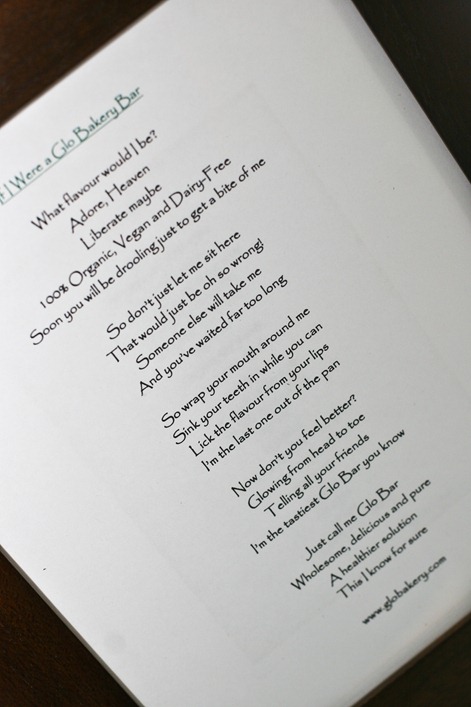 If I Were a Glo Bakery Bar
What flavour would I be?
Adore, Heaven
Liberate maybe
100% Organic, Vegan and Dairy-Free
Soon you will be drooling just to get a bite of me
So don't just let me sit here
That would just be oh so wrong!
Someone else will take me
And you've waited far too long
So wrap your mouth around me
Sink your teeth in while you can
Lick the flavour from your lips
I'm the last one out of the pan
Now don't you feel better?
Glowing from head to toe
Telling all your friends
I'm the tastiest Glo Bar you know
Just call me Glo Bar
Wholesome, delicious and pure
A healthier solution
This I know for sure
www.globakery.com